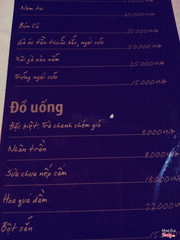 Nem tai
Bún cá
35.000 VNĐ
Gà ác tần thuốc bắc, ngải cứu
50.000 VNĐ
Xôi gà nấm
25.000 VNĐ
Trứng ngải cứu
15.000 VNĐ
Đồ uống
Đặc biệt: Trà chanh chém gió
8.000 VNĐ
Nhân trần
8.000 VNĐ
Sữa chua nếp cẩm
18.000 VNĐ
Hoa quả dầm
22.000 VNĐ
Bột sắn